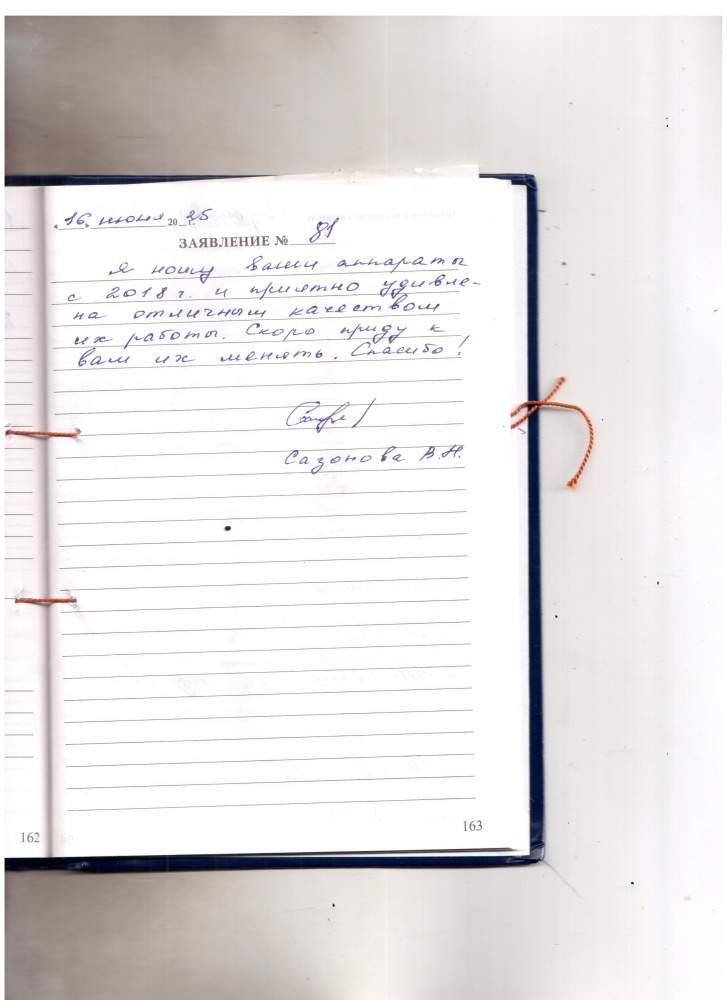 «16» июня 2025 г.
ЗАЯВЛЕНИЕ № 81
Я ношу ваши аппараты
с 2018 г. и приятно удивле-
на отличным качеством
их работы. Скоро приду к
вам их менять. Спасибо!
Сазонова В.Н.
162
163